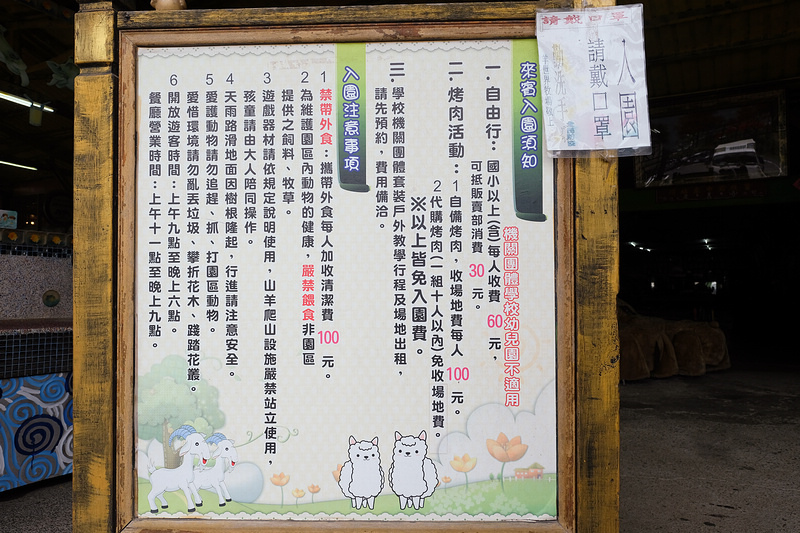 來客入園須知
機關團體學校幼兒園不適用
一.自由行：國小以上(含)每人收費 60 元，
可抵販賣部消費 30 元。
二.烤肉活動：1自備烤肉，收場地費每人 100 元。
2代購烤肉(一組十人以內)免收場地費。
※以上皆免入園費。
三.學校機關團體套裝戶外教學行程及場地出租，
請先預約，費用備洽。
入園注意事項
1 禁帶外食：攜帶外食每人加收清潔費 100 元。
2 為維護園區內動物的健康，嚴禁餵食非園區
提供之飼料、牧草。
3 遊戲器材請依規定說明使用，山羊爬山設施嚴禁站立使用，
孩童請由大人陪同操作。
4 天雨路滑地面因樹根隆起，行進請注意安全。
5 愛護動物請勿追趕、抓、打園區動物。
愛惜環境請勿亂丟垃圾、攀折花木、踐踏花叢。
6 開放遊客時間：上午九點至晚上六點。
餐廳營業時間：上午十一點至晚上九點。
請戴口罩
入園
請戴口罩